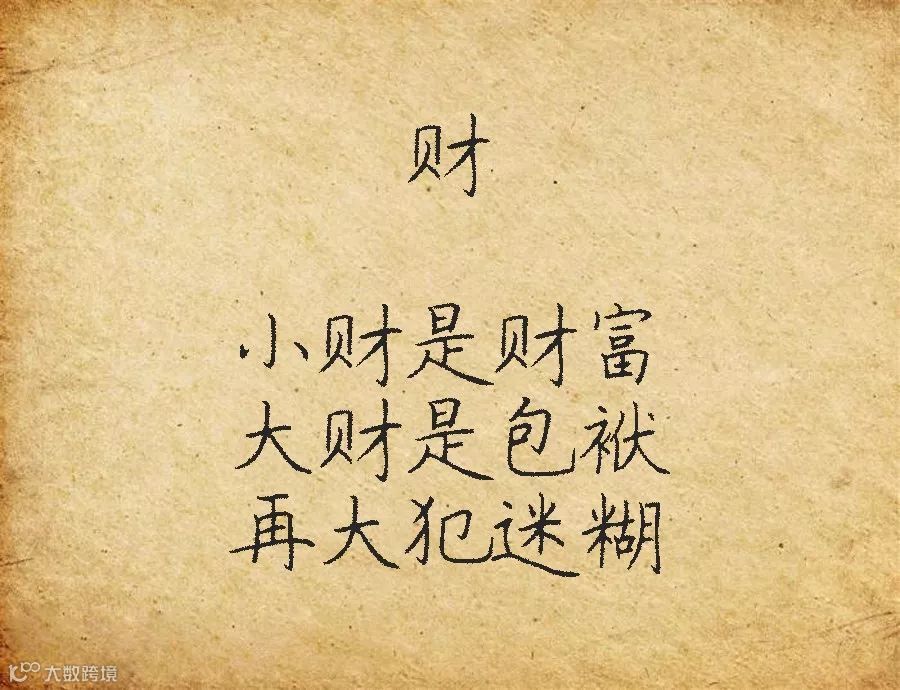 财
小财是财富
大财是包袱
再大犯迷糊
大数跨境